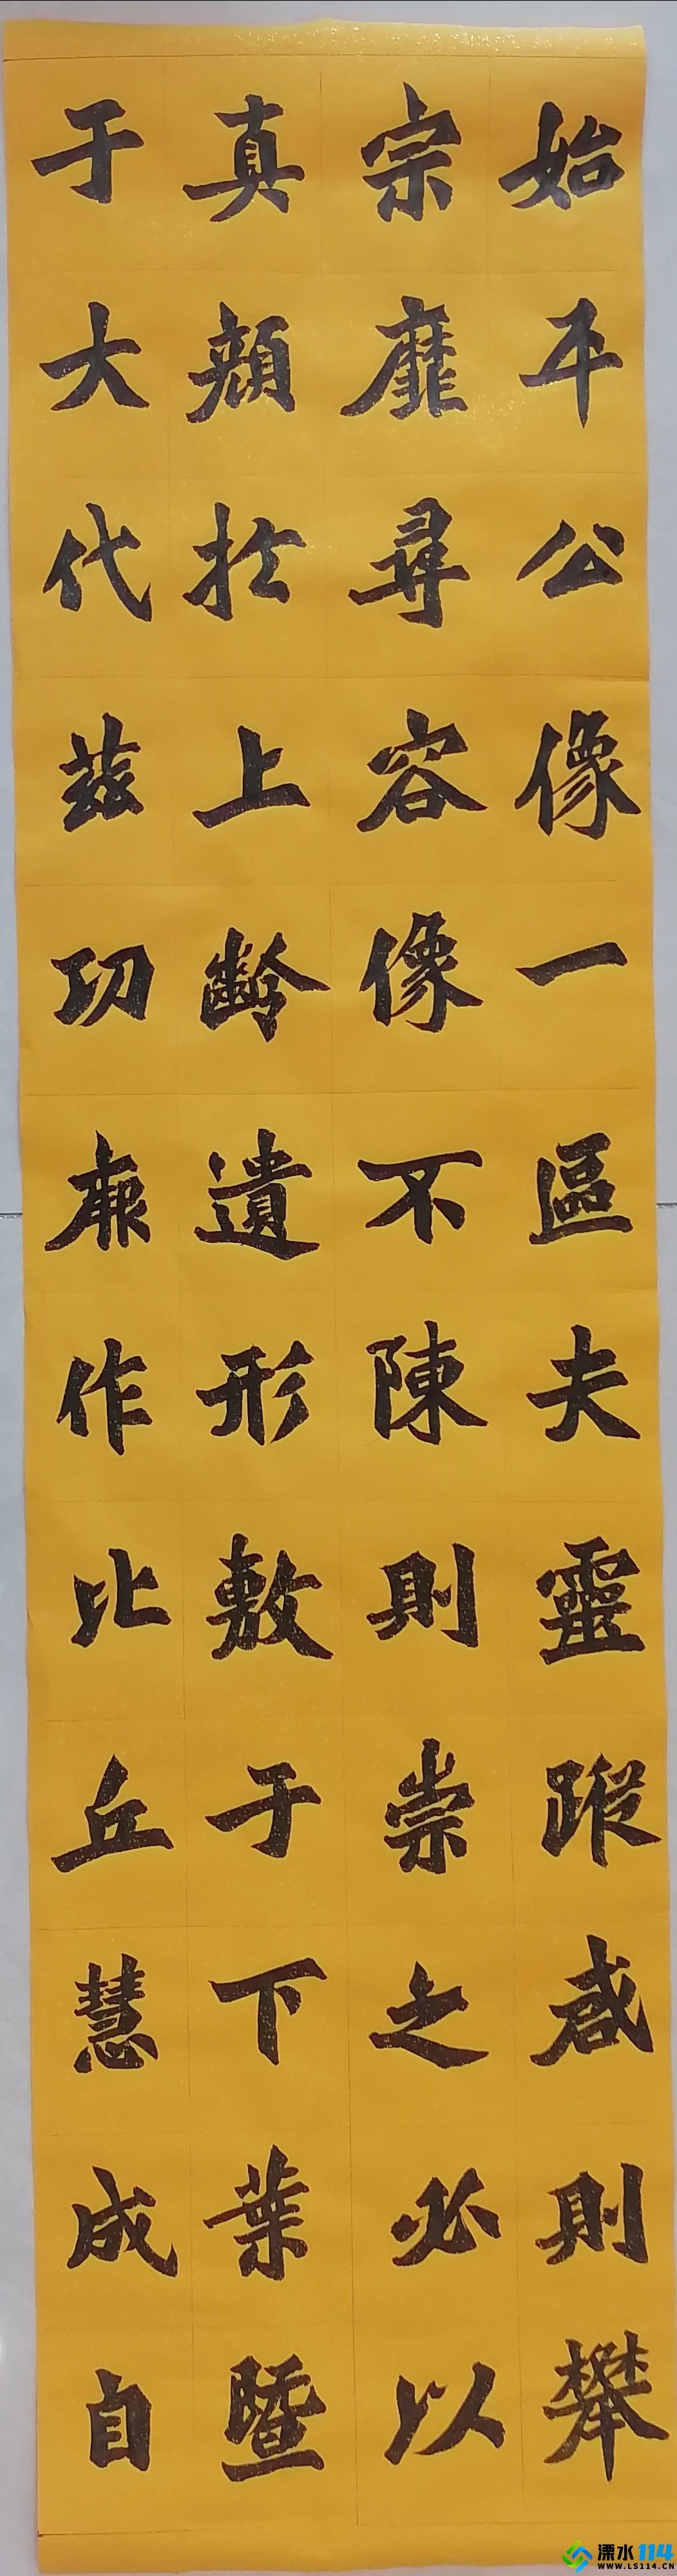 始平公像一區夫靈蹤咸則攀
宗靡尋容像不陳則崇之必以
真顏於上齡遺形敷于下葉暨
于大代茲功厥作比丘慧成自
溧水114
WWW.LS114.CN